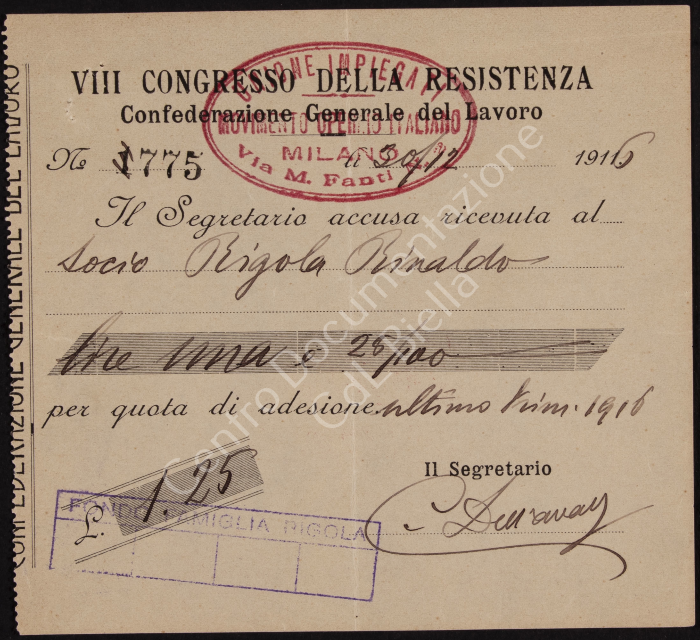 CONFEDERAZIONE GENERALE DEL LAVORO
VIII CONGRESSO DELLA RESISTENZA
Confederazione Generale del Lavoro
UNIONE IMPIEGATI
MOVIMENTO OPERAIO ITALIANO
MILANO
Via M. Fanti
No 1775 li 30/12 1916
Il Segretario accusa ricevuta al
socio Rigola Rinaldo
lire una e 25/100
per quota di adesione ultimo trim. 1916
Il Segretario
£. 1.25
FONDO FAMIGLIA RIGOLA
Centro Documentazione
CdL Biella